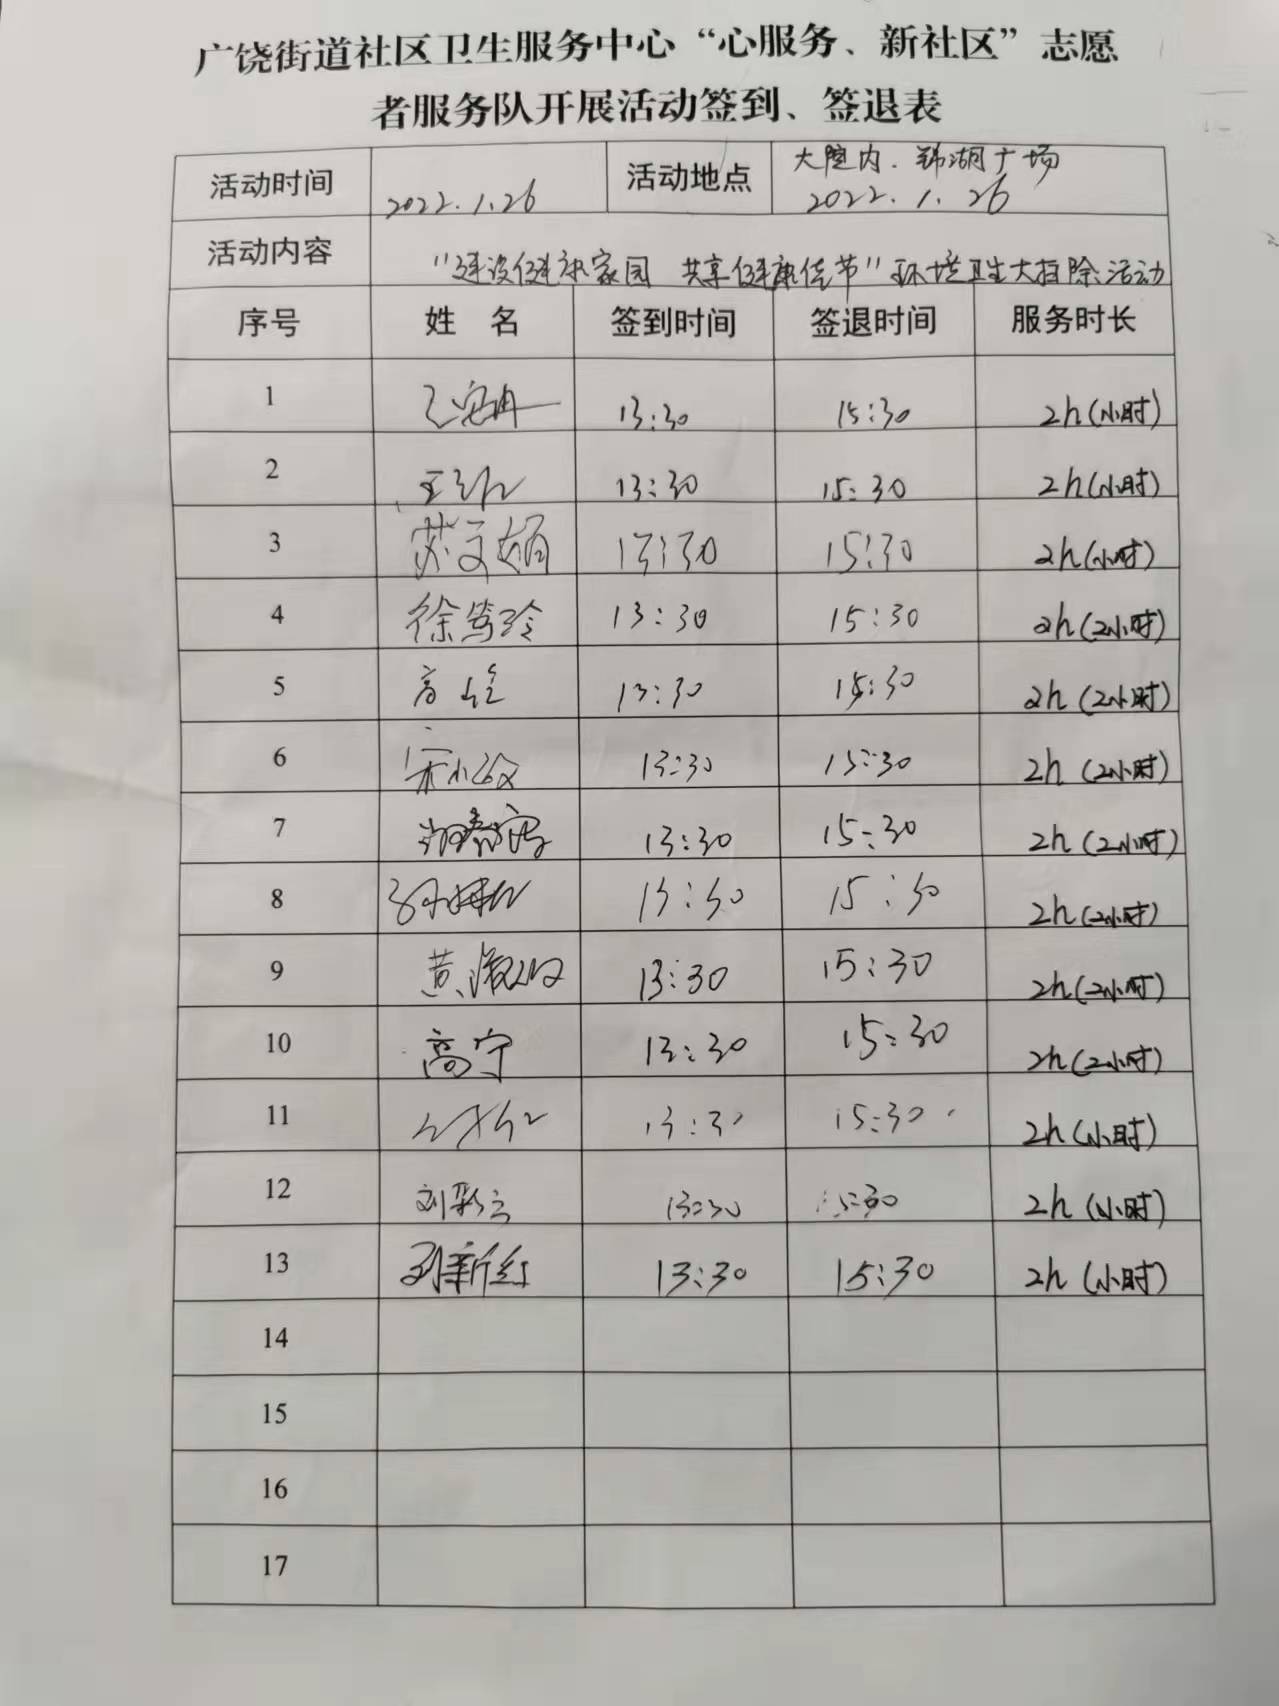 广饶街道社区卫生服务中心“心服务、新社区”志愿
者服务队开展活动签到、签退表
活动时间 2022.1.26 活动地点 大院内.锦湖广场
2022.1.26
活动内容 “建设健康家园 共享健康佳节”环境卫生大扫除活动
序号 姓 名 签到时间 签退时间 服务时长
1 13:30 15:30 2h(小时)
2 13:30 15:30 2h(小时)
3 苏文娟 13:30 15:30 2h(小时)
4 徐笃玲 13:30 15:30 2h(2小时)
5 13:30 15:30 2h(2小时)
6 13:30 15:30 2h(2小时)
7 13:30 15:30 2h(2小时)
8 13:30 15:30 2h(2小时)
9 13:30 15:30 2h(2小时)
10 高宁 13:30 15:30 2h(2小时)
11 13:30 15:30 2h(小时)
12 刘彩云 13:30 15:30 2h(小时)
13 刘新红 13:30 15:30 2h(小时)
14
15
16
17